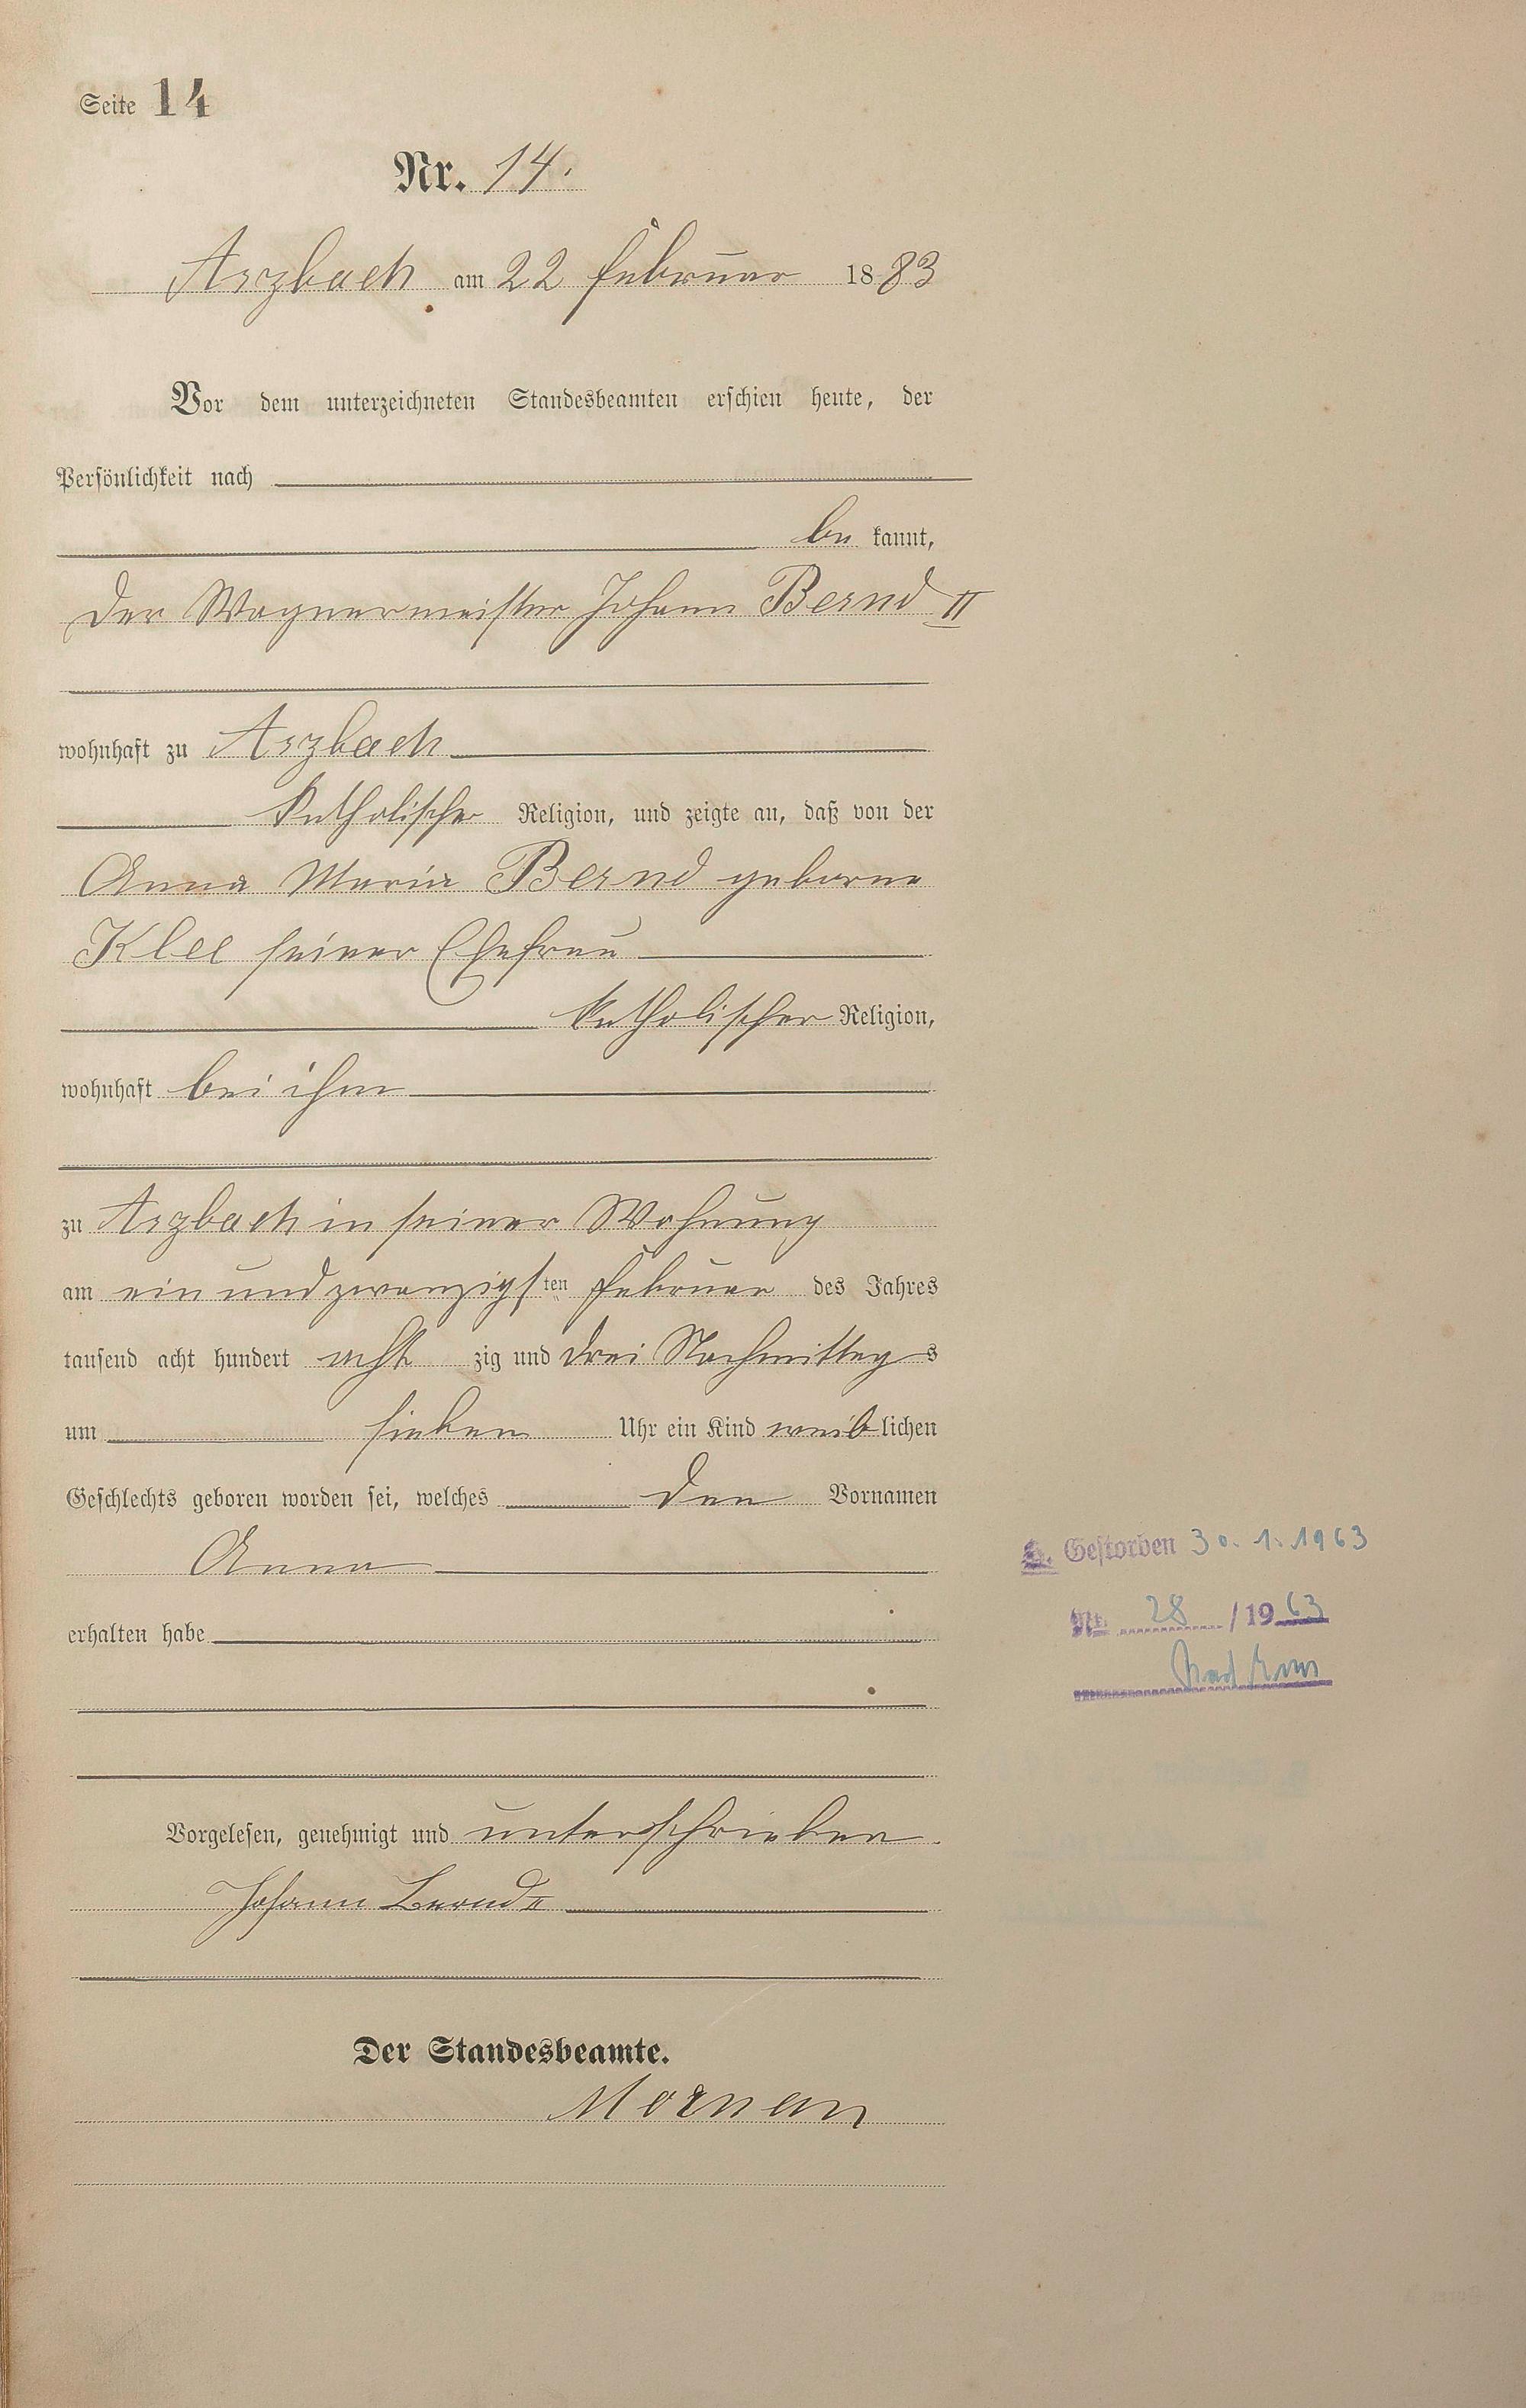 Seite 14
Nr. 14.
Arzbach am 22 Februar 1883
Vor dem unterzeichneten Standesbeamten erschien heute, der
Persönlichkeit nach
be kannt,
der Wagnermeister Johann Bernd II
wohnhaft zu Arzbach
katholischer Religion, und zeigte an, daß von der
Anna Maria Bernd geborne
Klee seiner Ehefrau
katholischer Religion,
wohnhaft bei ihm
zu Arzbach in seiner Wohnung
am ein und zwanzigsten Februar des Jahres
tausend acht hundert acht zig und drei Nachmittags
um sieben Uhr ein Kind weiblichen
Geschlechts geboren worden sei, welches den Vornamen
Anna
erhalten habe
Vorgelesen, genehmigt und unterschrieben.
Johann Bernd II
Der Standesbeamte.
Gestorben 30.1.1963
Nr. 28 / 1963
Bad Ems